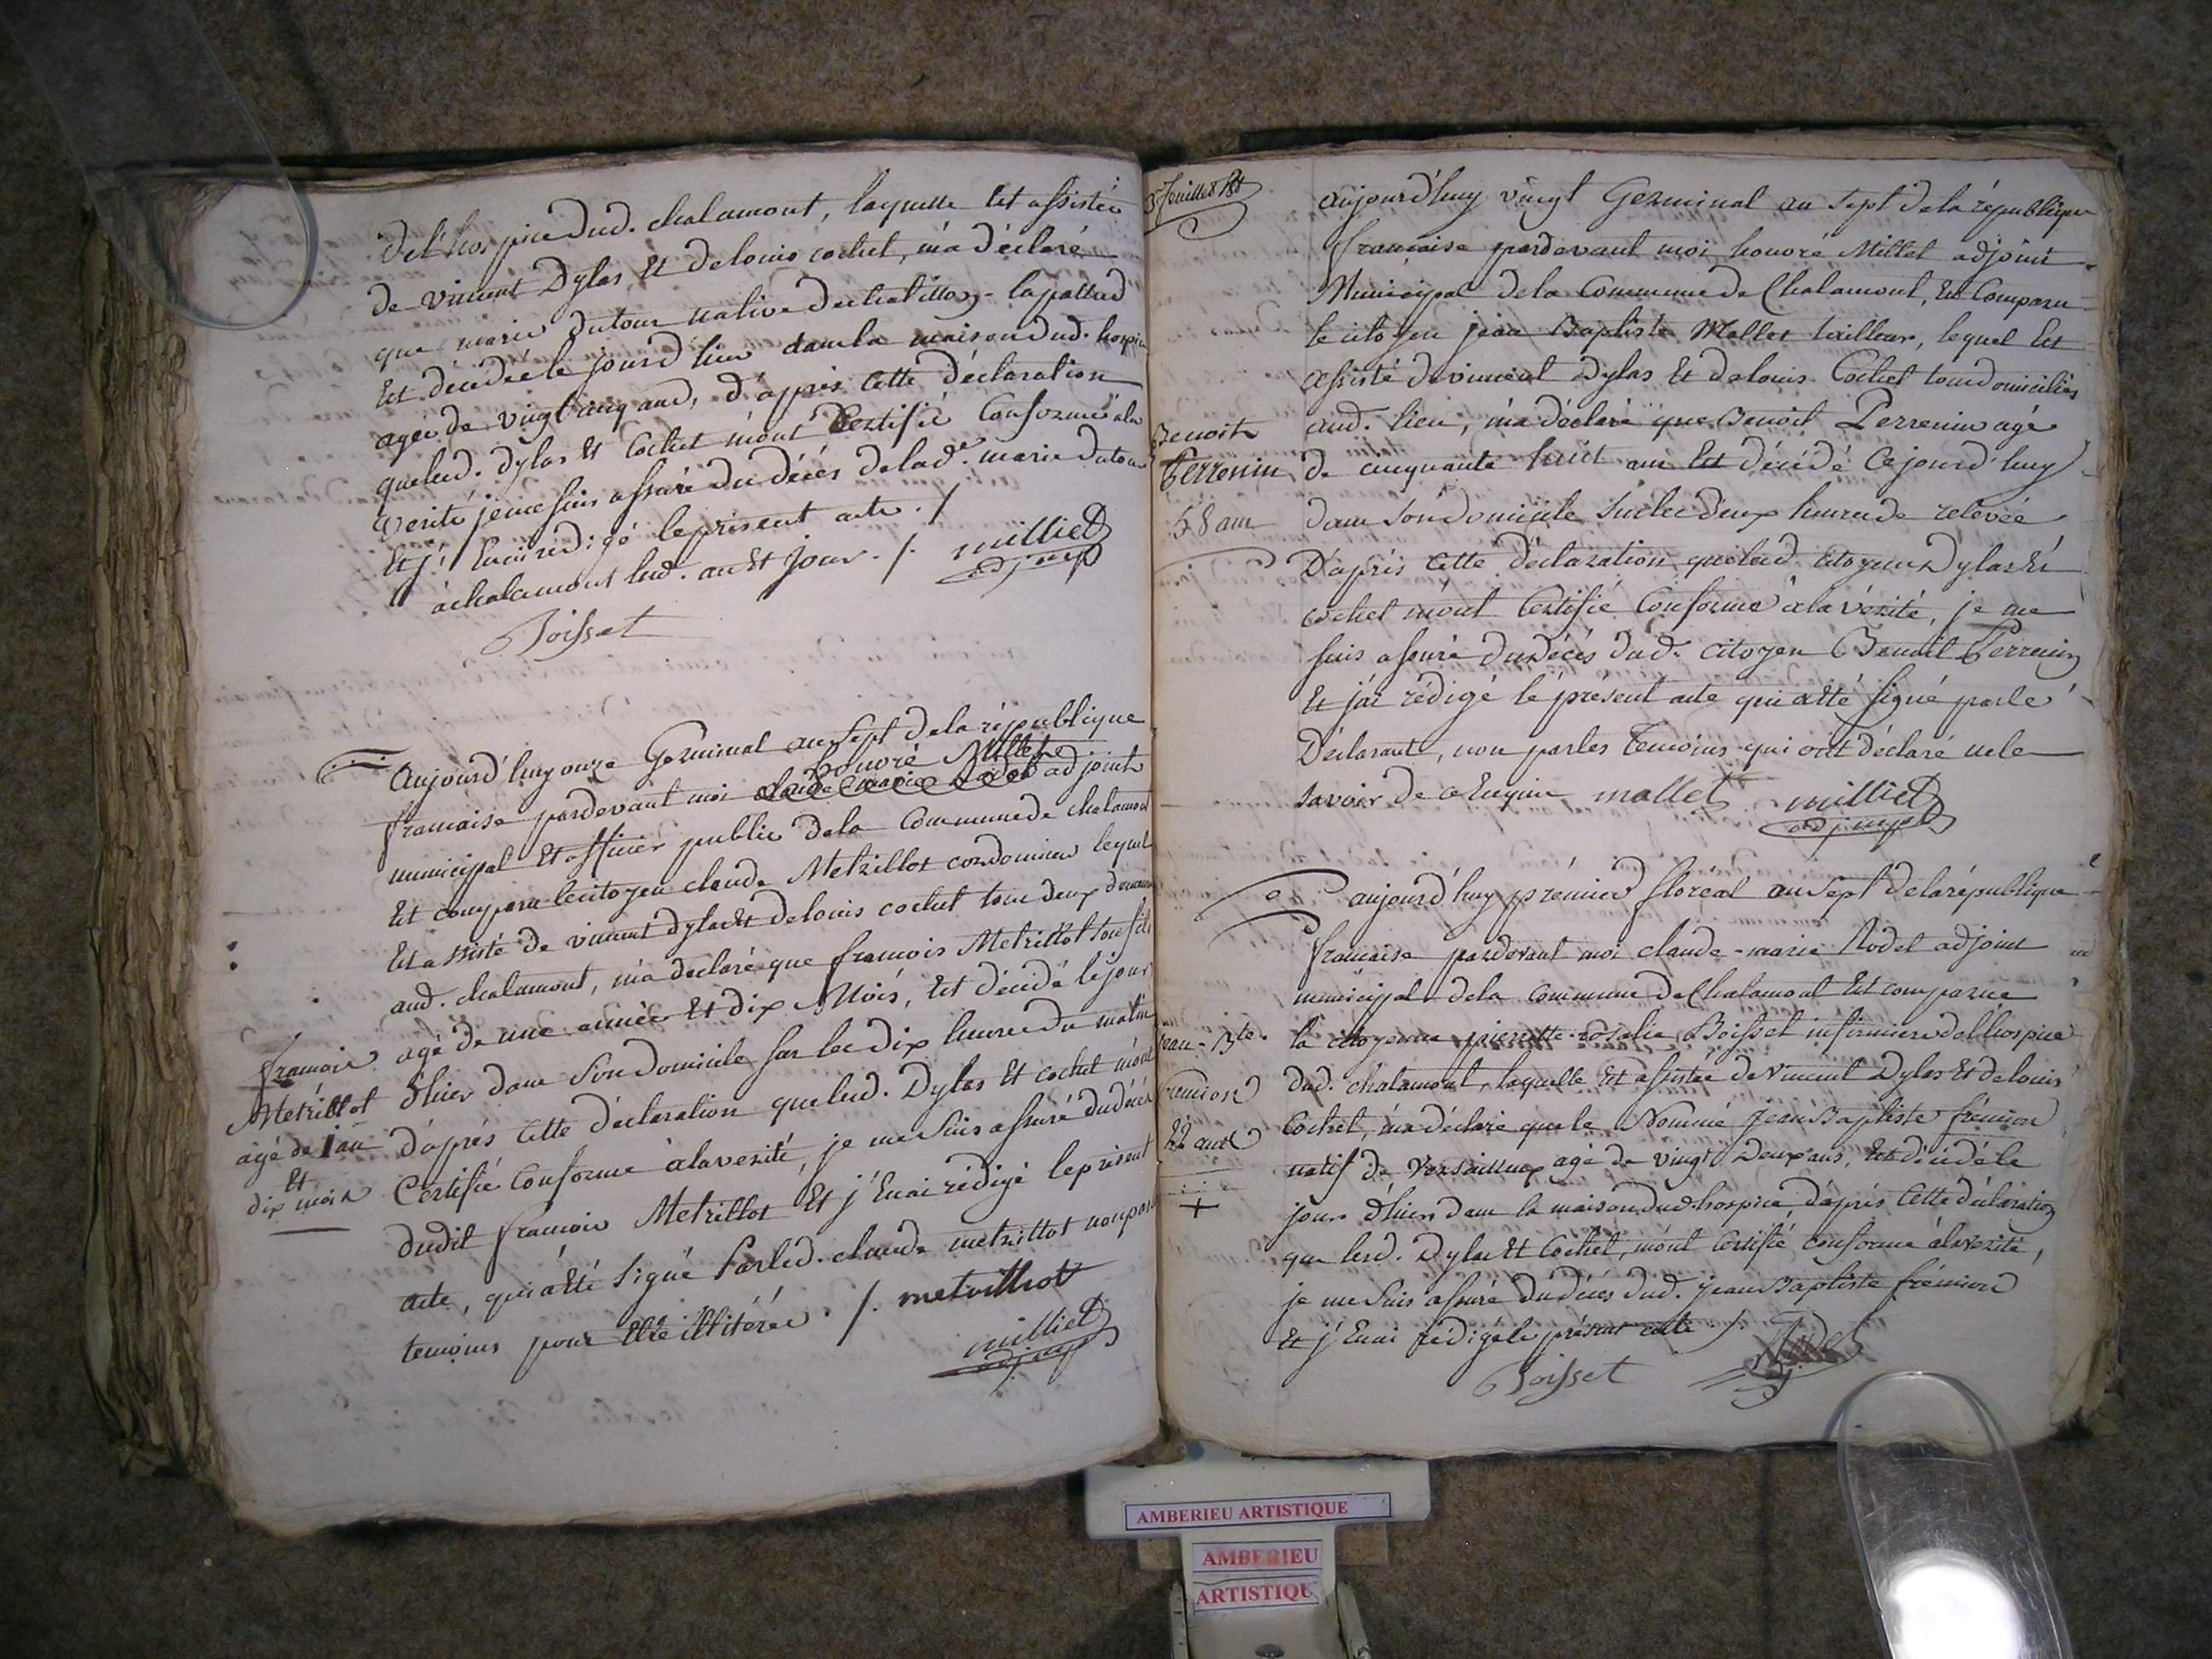 del'hospice dud. chalamont, laquelle Est assistée
de vincent Dylas Et de louis cochet, m'a déclaré
que marie dutour native de chatillon-lapallud
Est décédée le jourd'hier dans la maison dud. hospice
agée de vingt cinq ans, d'après cette déclaration
que lesd. dylas Et Cochet m'ont Certifié Conforme à la
verité je me suis assuré du décés de lad.e marie dutour
Et j'Enai redigé le présent acte ./
à chalamont lesd. an Et jour ./. milliet
adj mp
Boisset
Aujourd'huy onze Germinal an sept de la république
honoré Millet
francaise pardevant moi claude marie Rodet adjoint
municipal Et officier public de la Commune de chalamont
Est comparu le citoyen claude Metrillot cordonnier lequel
Est assisté de vincent dylas Et de louis cochet tous deux
aud. chalamont, m'a declaré que francois Metrillot son fils
agé de une année Et dix Mois, Est décédé le jour
d'hier dans son Domicile sur les dix heures du matin
d'aprés cette déclaration que lesd. Dylas Et cochet m'ont
Certifié Conforme à la verité, je me suis assuré du décés
dudit francois Metrillot Et j'Enai rédigé le présent
acte, qui a Eté signé Par led. claude metrillot non par
temoins pour Etre illitérés ./. metrillot
milliet
adj mp
francois
Metrillot
agé de 1 an
Et
dix mois
3e feuillet
aujourd'huy vingt Germinal an sept de la république
française pardevant moi honoré Millet adjoint
Municipal de la Commune de Chalamont, Est Comparu
le citoyen jean Baptiste Mallet tailleur, lequel Est
assisté de vincent Dylas Et de louis Cochet tous domiciliés
aud. lieu, m'a déclaré que Benoit Perrenin agé
de cinquante huit ans Est décédé Cejourd'huy
dans son domicile sur les deux heures de relevée
D'aprés cette déclaration que lesd. citoyens Dylas Et
cochet m'ont Certifié Conforme à la vérité, je me
suis assuré du décés dud. citoyen Benoit Perrenin
Et j'ai rédigé le présent acte qui a Eté signé par le
Déclarant, non par les Temoins qui ont déclaré ne le
savoir de ce Enquis mallet milliet
adj mp
Benoit
Perrenin
58 ans
aujourd'huy prémier floréal an sept de la république
francaise pardevant moi claude-marie Rodet adjoint
municipal de la commune de Chalamont Est comparue
la citoyenne pierrette-rosalie Boisset infirmiere de l'hospice
dud. chalamont, laquelle Est assistée de vincent Dylas Et de louis
Cochet, m'a déclaré que le Nommé Jean Baptiste frémion
natif de Versailleux agé de vingt Deux ans, Est décédé le
jour d'hier dans la maison dud. hospice, d'aprés Cette déclaration
que lesd. Dylas Et Cochet, m'ont Certifié conforme à la verité,
je me suis assuré du décés dud. Jean Baptiste frémion
Et j'Enai rédigé le présent acte ./. Rodet
Boisset adj.
jean-Bte
fremion
22 ans
AMBERIEU ARTISTIQUE
AMBERIEU
ARTISTIQU